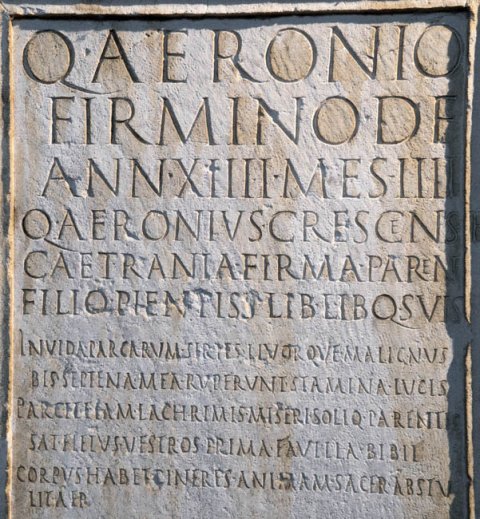 Q AERONIO
FIRMINO DE
ANN·XIIII·MES·IIII
Q AERONIVS CRESCENS
CAETRANIA FIRMA PAREN
FILIO PIENTISS LIB LIBQ SVIS
INVIDA PARCARVM SERIES LIVORQVE MALIGNVS
BIS SEPTENA MEA RVPERVNT STAMINA LVCIS
PARCITE IAM LACHRIMIS MISERI SOLIQ PARENTES
SAT FLETVS VESTROS PRIMA FAVILLA BIBIT
CORPVS HABET CINERES ANIMAM SACER ABSTV
LIT AER